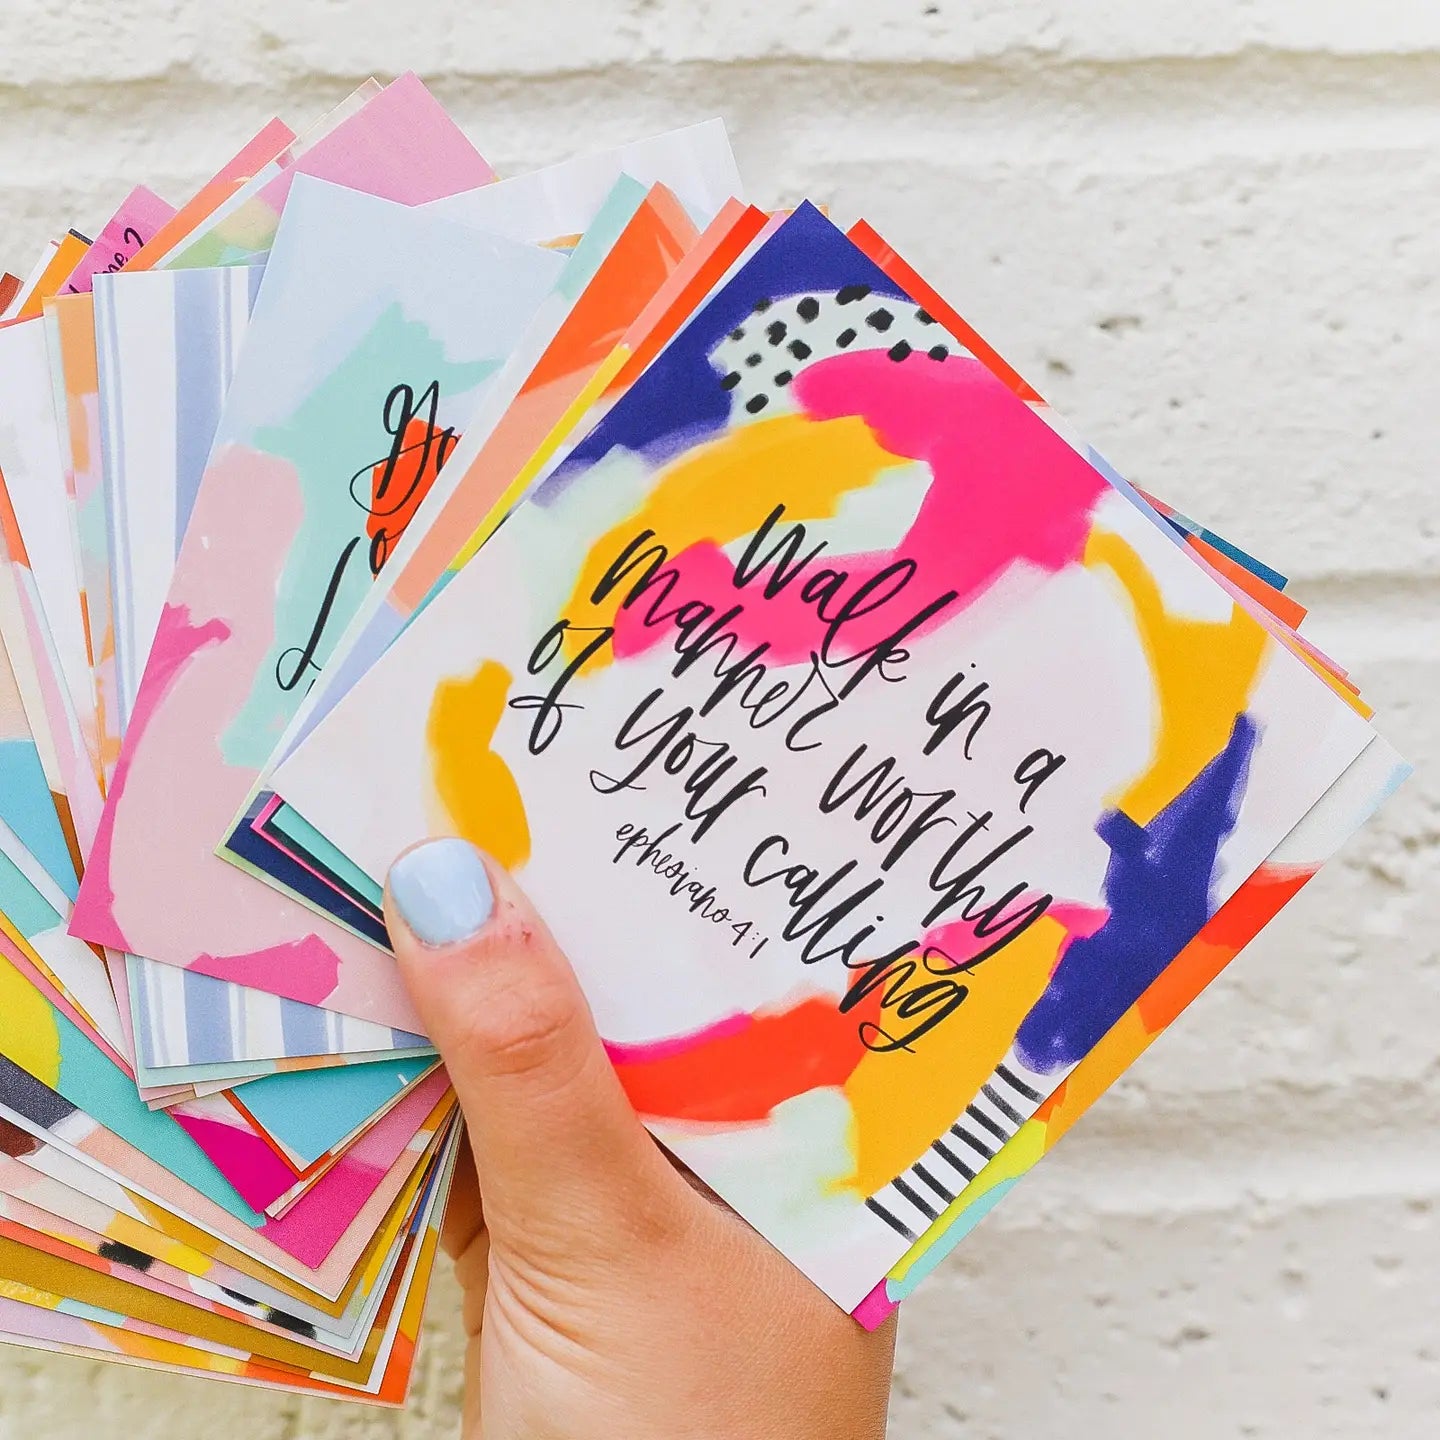 Walk in a
manner worthy
of your calling
ephesians 4:1